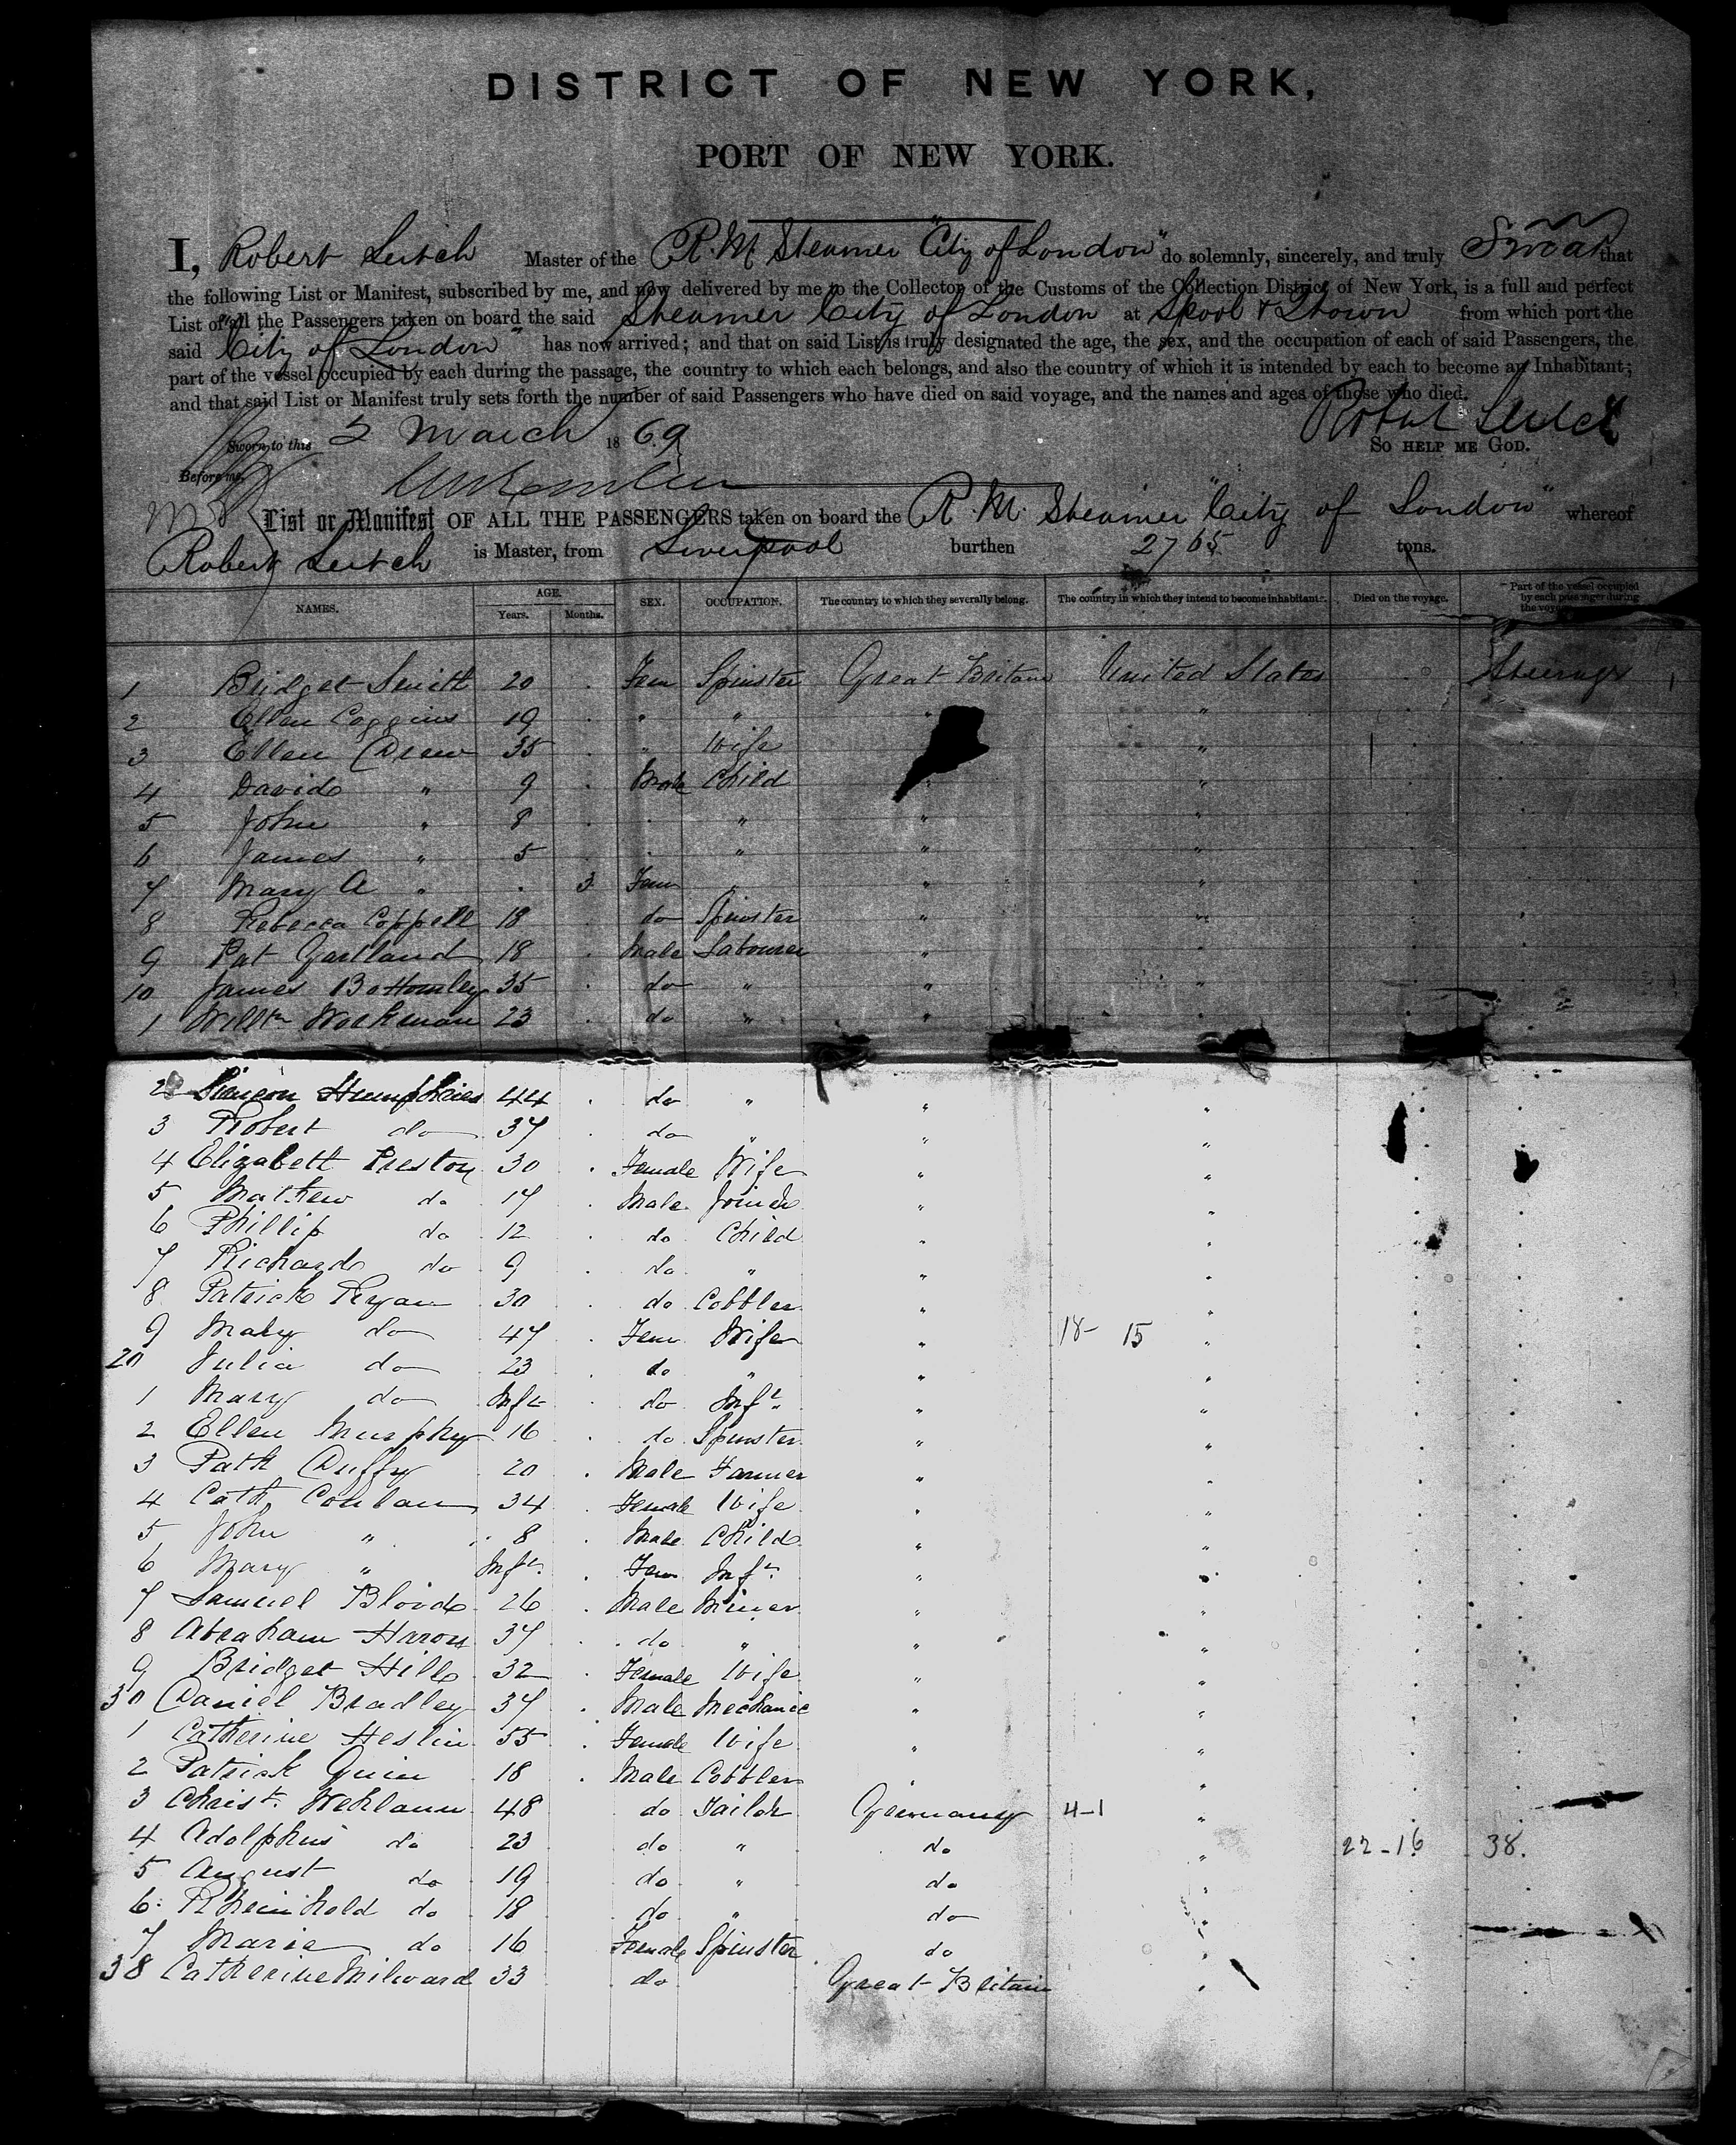 DISTRICT OF NEW YORK,
PORT OF NEW YORK.
I, Robert Leitch Master of the R. M. Steamer "City of London" do solemnly, sincerely, and truly Swear that
the following List or Manifest, subscribed by me, and now delivered by me to the Collector of the Customs of the Collection District of New York, is a full and perfect
List of all the Passengers taken on board the said Steamer City of London at Lpool & Qtown from which port the
said "City of London" has now arrived; and that on said List is truly designated the age, the sex, and the occupation of each of said Passengers, the
part of the vessel occupied by each during the passage, the country to which each belongs, and also the country of which it is intended by each to become an Inhabitant;
and that said List or Manifest truly sets forth the number of said Passengers who have died on said voyage, and the names and ages of those who died.
Robert Leitch
Sworn to this 2 March 1869 SO HELP ME GOD.
Before me,
List or Manifest OF ALL THE PASSENGERS taken on board the R. M. Steamer "City of London" whereof
Robert Leitch is Master, from Liverpool burthen 2765 tons.
NAMES. AGE. Years. Months. SEX. OCCUPATION. The country to which they severally belong. The country in which they intend to become inhabitants. Died on the voyage. Part of the vessel occupied by each passenger during the voyage
1 Bridget Smith 20 . Fem Spinster Great Britain United States . Steerage
2 Ellen Coggins 19 . " " " "
3 Ellen Drew 35 . " Wife "
4 David " 9 . Male Child "
5 John " 8 . . " " "
6 James " 5 . . " " "
7 Mary A " . 3 Fem . " "
8 Rebecca Coppell 18 do Spinster " "
9 Pat Gartland 18 . Male Labourer " "
10 James Bottomley 35 . do " " "
1 Willm Workman 23 . do " " "
2 Simeon Humphries 44 . do " " "
3 Robert do 37 . do " " "
4 Elizabeth Preston 30 . Female Wife " "
5 Mathew do 17 . Male Joiner " "
6 Phillip do 12 . do Child " "
7 Richard do 9 . do " " "
8 Patrick Ryan 30 . do Cobbler " "
9 Mary do 47 . Fem Wife " 18- 15 "
20 Julia do 23 . do " " "
1 Mary do Inft . do Inft. " "
2 Ellen Murphy 16 . do Spinster " "
3 Patk Duffy 20 . Male Farmer " "
4 Cath Conlan 34 . Female Wife " "
5 John " 8 . Male Child " "
6 Mary " Inft. . Fem Inft. " "
7 Samuel Blood 26 . Male Miner " "
8 Abraham 37 . do " " "
9 Bridget Hill 32 . Female Wife " "
30 Daniel Bradley 37 . Male Mechanic " "
1 Catherine Heslin 55 . Female Wife " "
2 Patrick Quin 18 . Male Cobbler " "
3 Christ. 48 do Tailor Germany 4-1 "
4 Adolphus do 23 do " do " 22-16 38.
5 August do 19 do " do "
6 Rheinhold do 18 do " do "
7 Maria do 16 Female Spinster do "
38 Catherine Milward 33 do Great Britain "